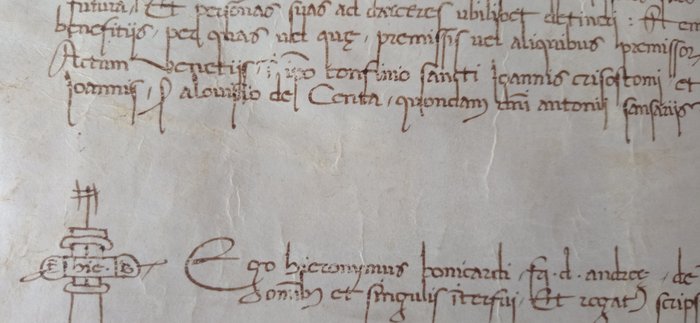 futura, Et personas suas ad carceres ubilibet detineri: Ren
benefitijs, per quas uel quę, premissis uel aliquibus premissor
Actum Venetijs, in confinio sancti Ioannis crisostomi et
Ioannis, alouisio del Cerita, quondam dñi antonij sansarijs
E hie. B
Ego hieronymus bonicardi, fq. d. andreę, de
omĩbus et singulis ĩterfui, Et rogatus scrips